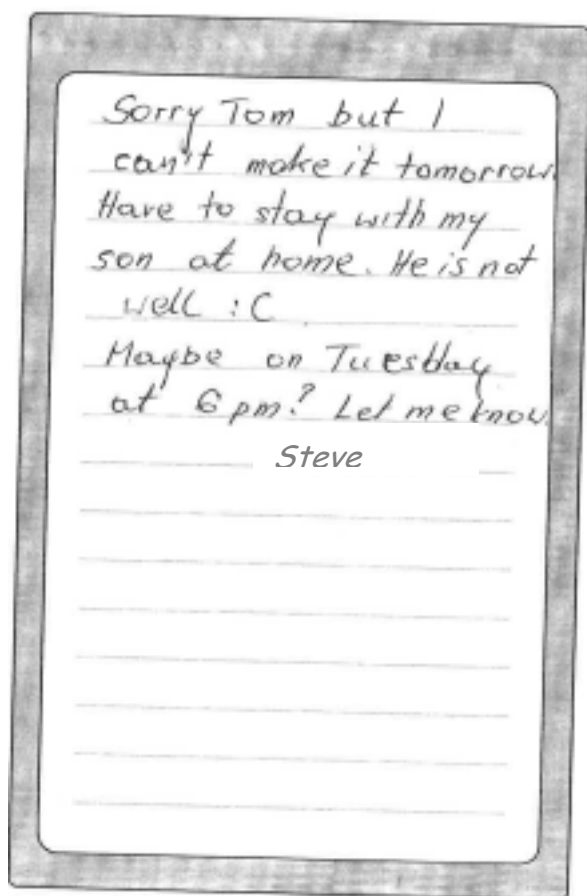 Sorry Tom but I
can't make it tomorrow.
Have to stay with my
son at home. He is not
well :C
Maybe on Tuesday
at 6 pm? Let me know.
Steve